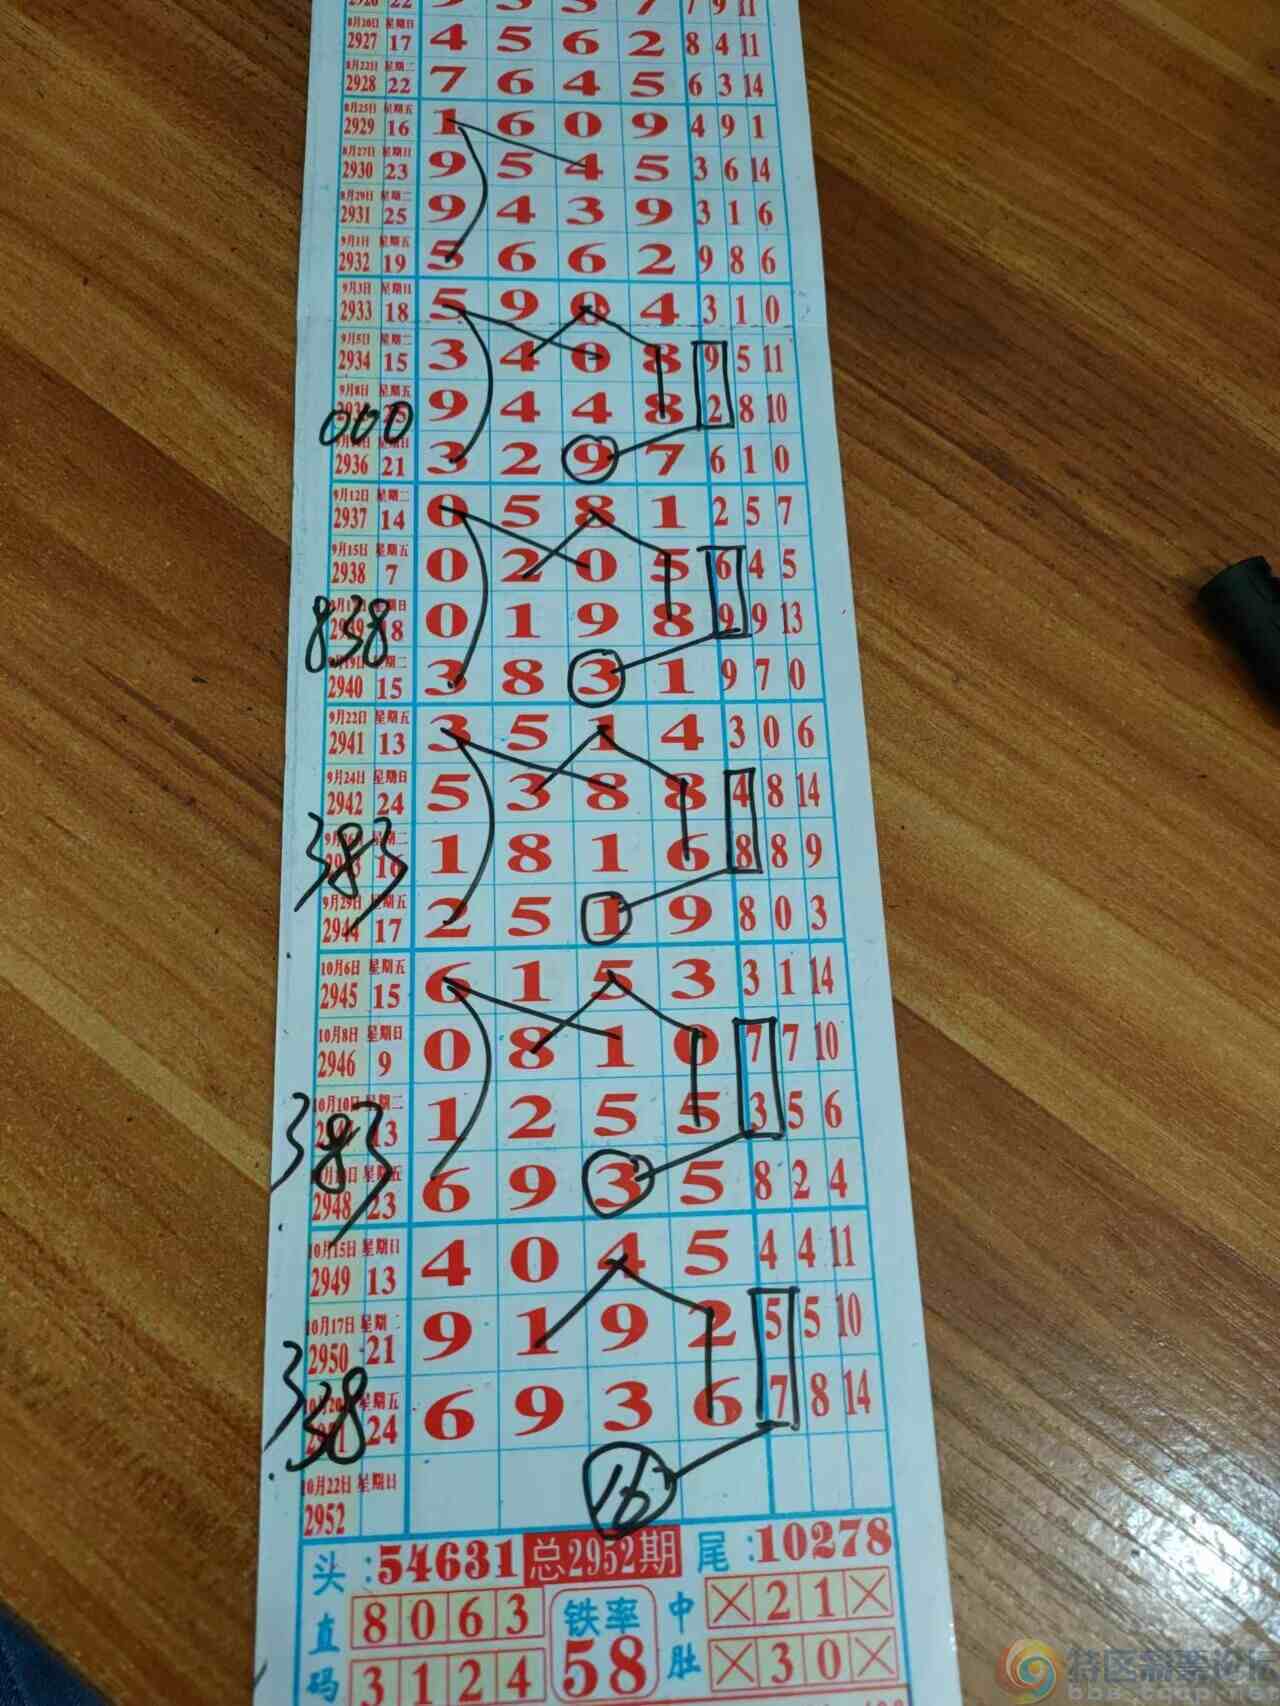 2926 22 9 3 3 7 7 9 11
8月20日 星期日
2927 17 4 5 6 2 8 4 11
8月22日 星期二
2928 22 7 6 4 5 6 3 14
8月25日 星期五
2929 16 1 6 0 9 4 9 1
8月27日 星期日
2930 23 9 5 4 5 3 6 14
8月29日 星期二
2931 25 9 4 3 9 3 1 6
9月1日 星期五
2932 19 5 6 6 2 9 8 6
9月3日 星期日
2933 18 5 9 0 4 3 1 0
9月5日 星期二
2934 15 3 4 0 8 9 5 11
9月8日 星期五
25 9 4 4 8 2 8 10
000
2936 21 3 2 9 7 6 1 0
9月12日 星期二
2937 14 0 5 8 1 2 5 7
9月15日 星期五
2938 7 0 2 0 5 6 4 5
2939 18 0 1 9 8 9 9 13
838
9月19日 星期二
2940 15 3 8 3 1 9 7 0
9月22日 星期五
2941 13 3 5 1 4 3 0 6
9月24日 星期日
2942 24 5 3 8 8 4 8 14
9月26日 星期二
16 1 8 1 6 8 8 9
383
9月29日 星期五
2944 17 2 5 1 9 8 0 3
10月6日 星期五
2945 15 6 1 5 3 3 1 14
10月8日 星期日
2946 9 0 8 1 0 7 7 10
10月10日 星期二
13 1 2 5 5 3 5 6
383
2948 23 6 9 3 5 8 2 4
10月15日 星期日
2949 13 4 0 4 5 4 4 11
10月17日 星期二
2950 21 9 1 9 2 5 5 10
10月20日 星期五
2951 24 6 9 3 6 7 8 14
338
10月22日 星期日
2952
16
头:54631 总2952期 尾:10278
直码 8063 铁率 中肚 ×21×
3124 58 ×30×
特区彩票论坛